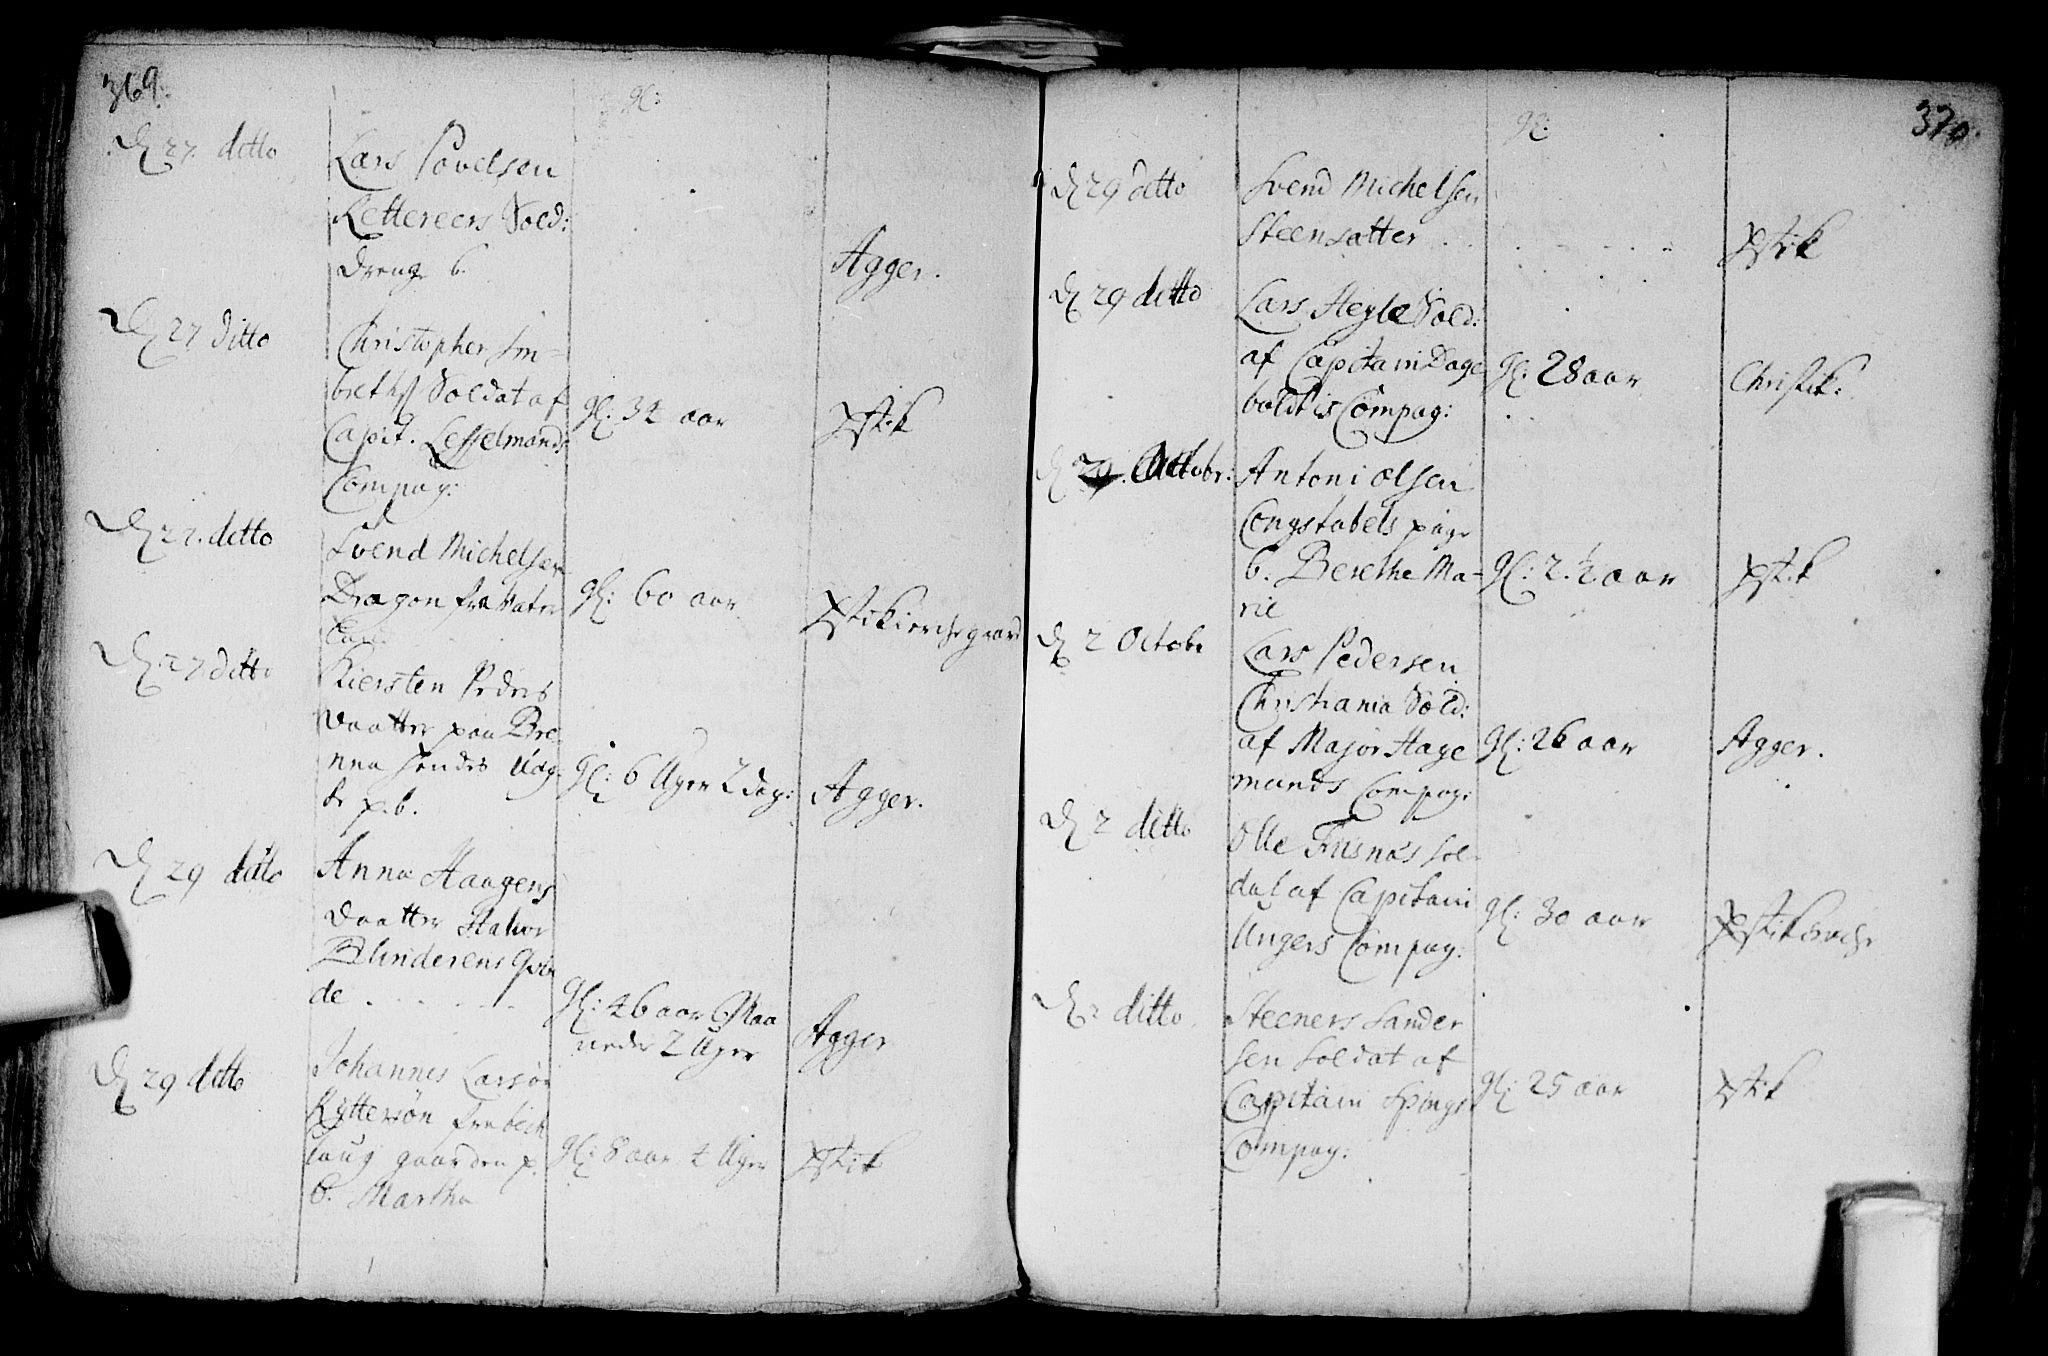 369.
gl:
D 27. ditto
Lars Povelsen
Kettereers Sold:
drenge b.
Agger.
D 27 ditto
Christopher Im-
breths Soldat af
Capit. Leffelmands
Compag:
gl: 34 aar
Xstik
D 27. ditto
Svend Michelsen
Dragon fra
gl: 60 aar
Xstikierchegaard
D 27 ditto
Kiersten Peders
daatter paa Bre-
nna hendes
p. b.
gl: 6 Uger 2 dag:
Agger.
D 29 ditto
Anna Haagens
daatter
Blinderens
de
gl: 46 aar Maa
neder 2 Uger
Agger
D 29 ditto
Johannes Larsøn
Rÿttersøn fra
laug gaarden p.
b. Martha
gl: 8 aar 4 Uger
Xstik
370.
gl:
D 29 ditto
Svend Michelsen
Steensatter
Xstik
D 29 ditto
Lars Heyle Sold:
af Capitain Dage
boldtis Compag:
gl: 28 aar
Christik:
D 29. Octobr:
Antoni Olsen
Congstabels pige
b. Berethe Ma-
rie
gl: 2. ½ aar
Xstik
D 2 Octobr
Lars Pedersen
Christiania Sold:
af Major Hage
mands Compag:
gl: 26 aar
Agger.
D 2 ditto
Olle Fusnæs Sol-
dat af Capitain
Ungers Compag:
gl: 30 aar
Xstikirche
D 2 ditto
Steeners Sander
sen Soldat af
Capitain Spings
Compag:
gl: 25 aar
Xstik